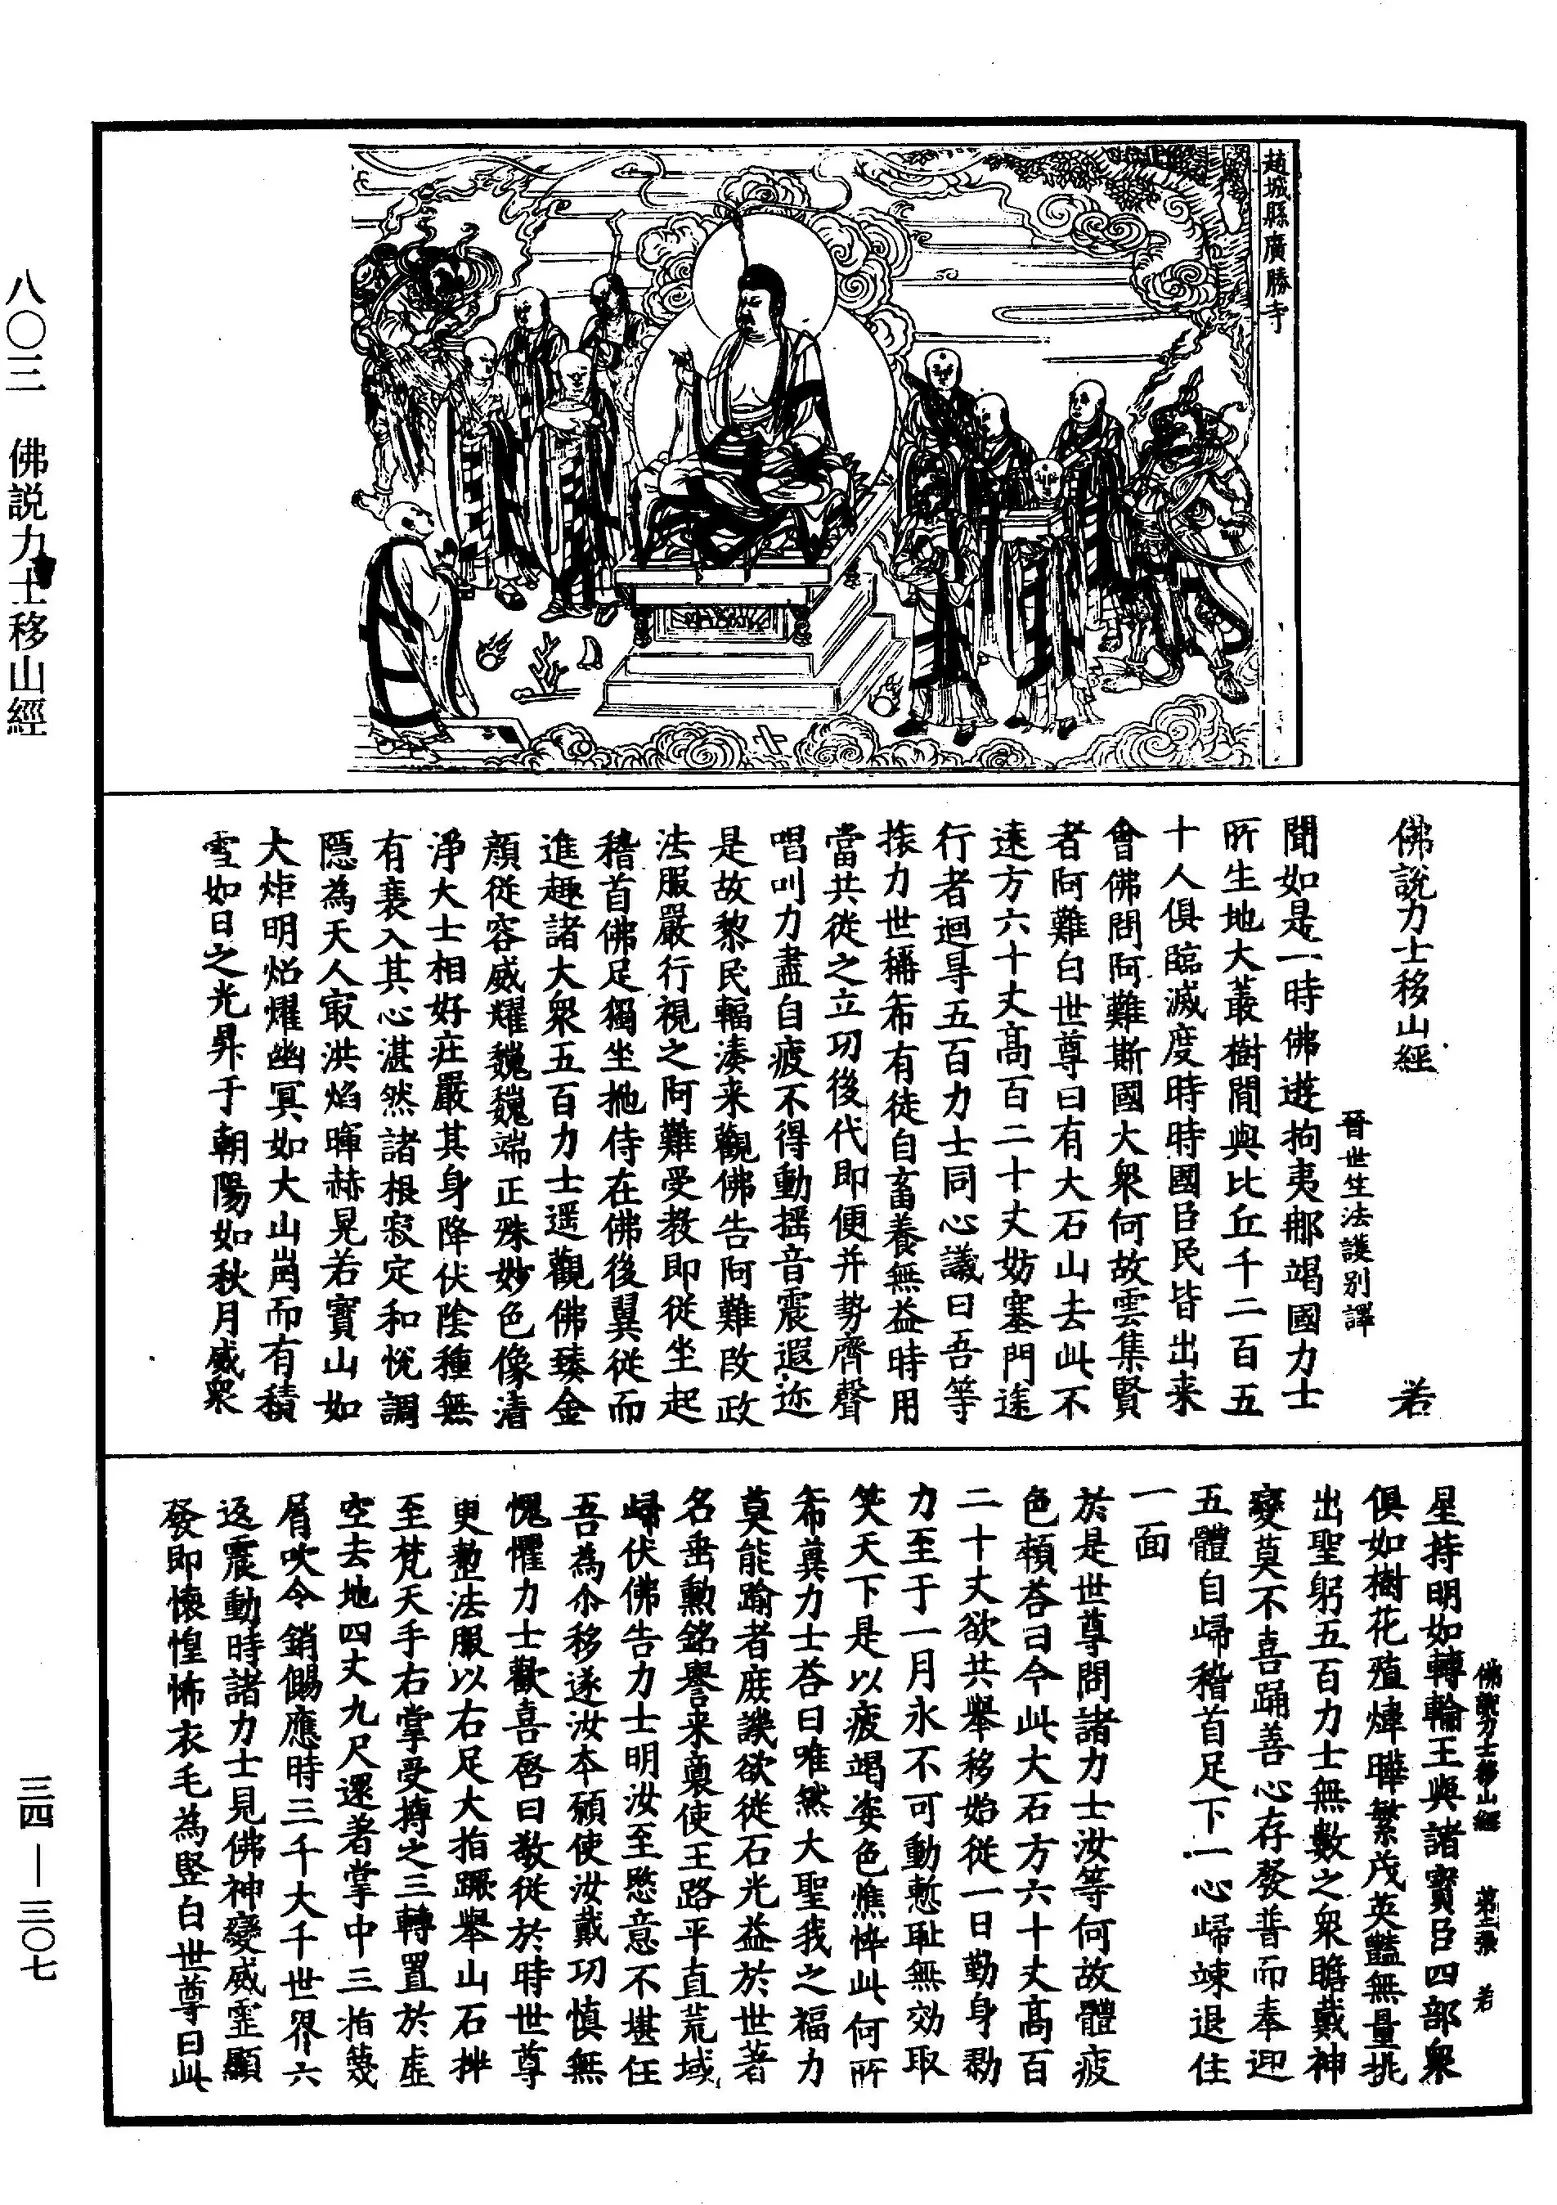 趙城縣廣勝寺
佛說力士移山經　若
晉世竺法護別譯
聞如是一時佛遊拘夷那竭國力士
所生地大叢樹間與比丘千二百五
十人俱臨滅度時時國臣民皆出来
會佛問阿難斯國大衆何故雲集賢
者阿難白世尊曰有大石山去此不
遠方六十丈高百二十丈妨塞門途
行者迴㝵五百力士同心議曰吾等
膂力世稱希有徒自畜養無益時用
當共徙之立功後代即便并勢齊聲
唱叫力盡自疲不得動揺音震遐迩
是故黎民輻湊来觀佛告阿難改政
法服嚴行視之阿難受教即從坐起
稽首佛足獨坐扡侍在佛後翼從而
進趣諸大衆五百力士遥觀佛臻金
顔從容威耀巍巍端正殊妙色像清
淨大士相好莊嚴其身降伏陰種無
有衰入其心湛然諸根寂定和悅調
隱為天人㝡洪焰暉赫晃若寶山如
大炬明焰耀幽冥如大山崗而有積
雪如日之光昇于朝陽如秋月威衆
佛說力士移山經　第二張　若
星持明如轉輪王與諸寶臣四部衆
俱如樹花殖煒曄繁茂英豔無量挑
出聖躬五百力士無數之衆瞻戴神
變莫不喜踊善心存發普而奉迎
五體自歸稽首足下一心歸竦退住
一面
於是世尊問諸力士汝等何故體疲
色頼荅曰今此大石方六十丈高百
二十丈欲共舉移始從一日勤身勠
力至于一月永不可動慙耻無効取
笑天下是以疲竭姿色憔悴此何所
希䔥力士荅曰唯然大聖我之福力
莫能踰者庶譏欲徙石光益於世著
名垂勳銘譽来裔使王路平直荒域
歸伏佛告力士明汝至愍意不堪任
吾為尒移遂汝本願使汝戴功慎無
愧懼力士歡喜啓曰敬從於時世尊
更整法服以右足大拍蹶舉山石拌
至梵天手右掌受搏之三轉置於虛
空去地四丈九尺還著掌中三拍篾
屑吹令銷䬾應時三千大千世界六
返震動時諸力士見佛神變威靈顯
發即懷惶怖衣毛為竪白世尊曰此
八〇三　佛説力士移山經
三四—三〇七